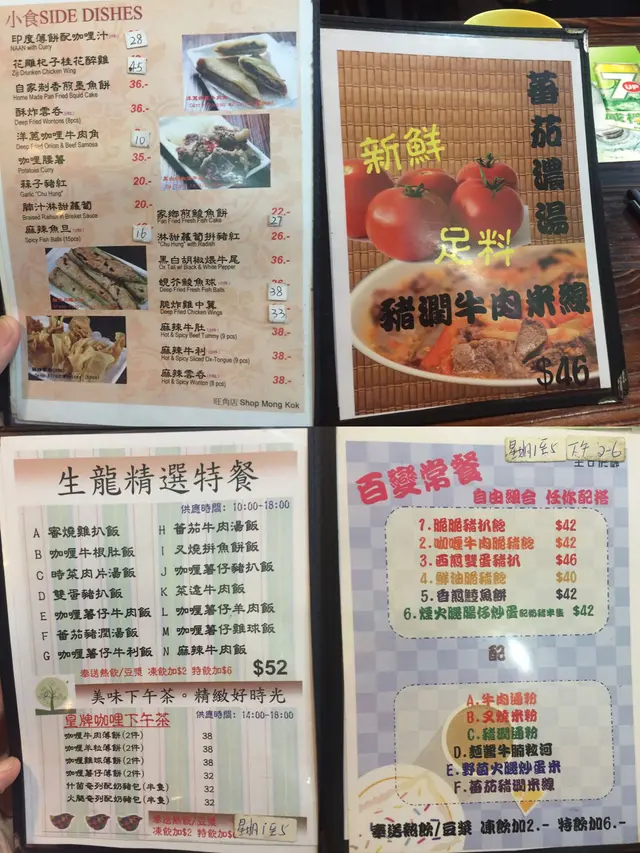 小食SIDE DISHES
印度薄餅配咖哩汁
28
NAAN with Curry
花雕杞子桂花醉雞
45
Ziji Drunken Chicken Wing
自家制香煎墨魚餅
36.-
Home Made Pan Fried Squid Cake
酥炸雲吞
36.-
Deep Fried Wontons (8pcs)
洋蔥咖哩牛肉角
10
Deep Fried Onion & Beef Samosa
咖哩薯
35.-
Potatoes Curry
蒜子豬紅
20.-
Garlic "Chu Hung"
腩汁淋甜蘿蔔
20.-
Braised Radish in Brisket Sauce
麻辣魚旦
16
Spicy Fish Balls (15pcs)
家鄉煎鯪魚餅
22.-
27
Pan Fried Fresh Fish Cake
淋甜蘿蔔拼豬紅
26.-
"Chu Hung" with Radish
黑白胡椒燴牛尾
36.-
Ox Tail w/ Black & White Pepper
蜆芥鯪魚球
38
Deep Fried Fresh Fish Balls
脆炸雞中翼
33
Deep Fried Chicken Wings
麻辣牛肚
38.-
Hot & Spicy Beef Tummy (9 pcs)
麻辣牛脷
38.-
Hot & Spicy Sliced Ox-Tongue (9 pcs)
麻辣雲吞
38.-
Hot & Spicy Wonton (8 pcs)
旺角店 Shop Mong Kok
蕃茄濃湯
新鮮
足料
豬潤牛肉米線
$46
7
UP
生龍精選特餐
供應時間: 10:00-18:00
A 蜜燒雞扒飯
B 咖喱牛根肚飯
C 時菜肉片湯飯
D 雙蛋豬扒飯
E 咖喱薯仔牛肉飯
F 蕃茄豬潤湯飯
G 咖喱薯仔牛利飯
H 蕃茄牛肉湯飯
I 叉燒拼魚餅飯
J 咖喱薯仔豬扒飯
K 菜遠牛肉飯
L 咖喱薯仔羊肉飯
M 咖喱薯仔雞球飯
N 麻辣牛肉飯
奉送熱飲/豆漿 凍飲加$2 特飲加$6
$52
美味下午茶。精緻好時光
皇牌咖哩下午茶
供應時間: 14:00-18:00
咖喱牛肉薄餅(2件) 38
咖喱羊粒薄餅(2件) 38
咖喱雞球薄餅(2件) 38
咖喱薯仔薄餅(2件) 32
什菌奄列配奶豬包(半隻) 32
火腿奄列配奶豬包(半隻) 32
奉送熱飲/豆漿
凍飲加$2 特飲加$6
星期1至5
星期1至5 下午2-6
百變常餐
自由組合 任你配搭
1.脆脆豬扒飽 $42
2.咖喱牛肉脆豬飽 $42
3.西煎雙蛋豬扒 $46
4.鮮油脆豬飽 $40
5.香煎鯪魚餅 $42
6.煙火腿腸仔炒蛋配奶豬半隻 $42
配
A.牛肉湯粉
B.叉燒米粉
C.豬潤湯粉
D.麵醬牛腩粒河
E.野菌火腿炒蛋米
F.蕃茄豬潤米線
奉送熱飲/豆漿 凍飲加2.- 特飲加6.-